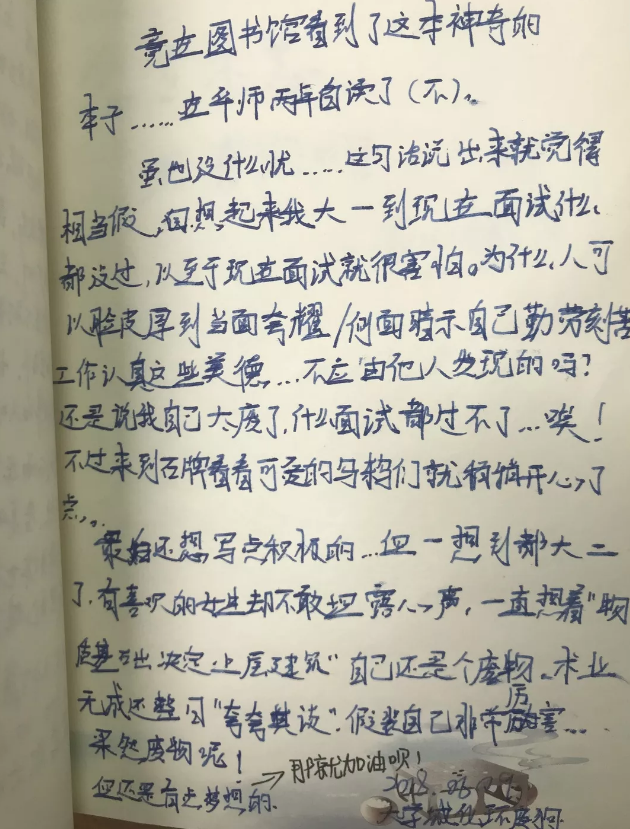 竟在图书馆看到了这本神奇的
本子……在华师两年白读了（不）。
虽也没什么忧……这句话说出来就觉得
相当假，但想起来我大一到现在面试什么
都没过，以至于现在面试就很害怕。为什么人可
以脸皮厚到当面夸耀/侧面暗示自己勤劳刻苦
工作认真这些美德…不应由他人发现的吗？
还是说我自己太废了，什么面试都过不了…唉！
不过来到石牌看看可爱的乌鸫们就稍稍开心了
点。
最后还想写点积极的…但一想到都大二
了，有喜欢的女生却不敢坦露心声，一直想着"物
质基础决定上层建筑"自己还是个废物。术业
无成还整日"夸夸其谈"。假装自己非常厉害…
果然废物呢！
但还是有点梦想的.→那就加油呗！
大学城